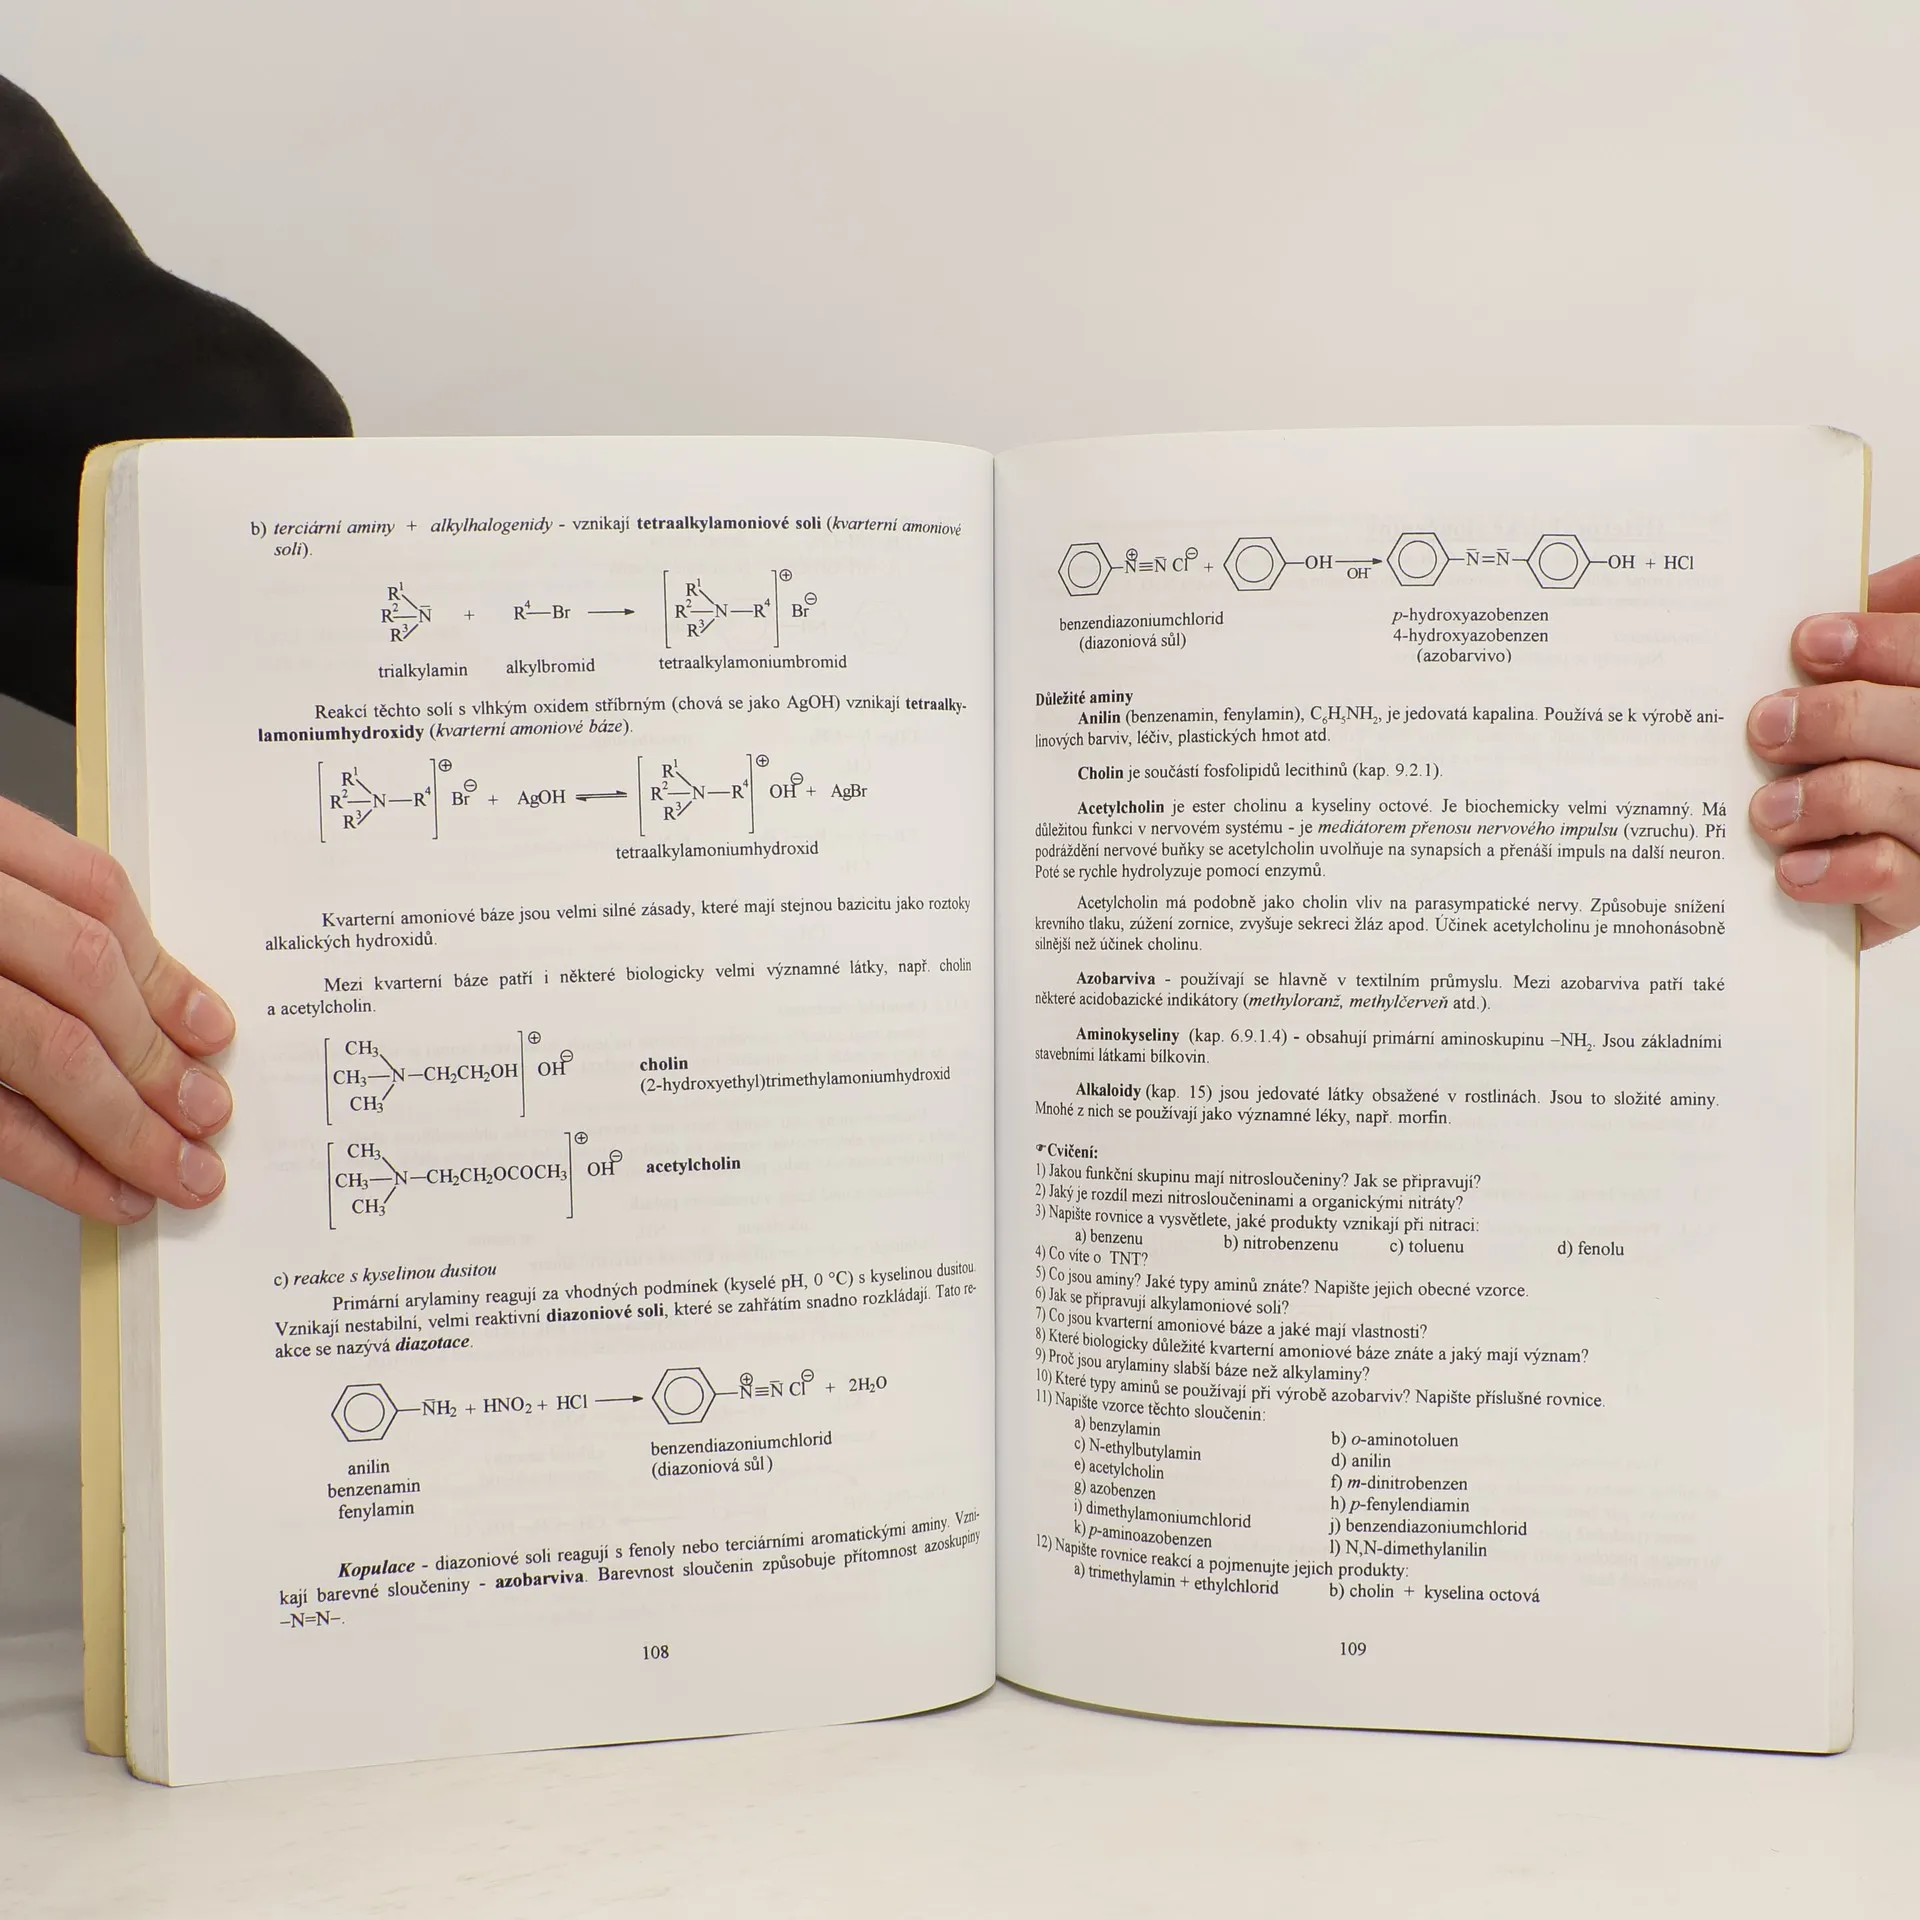 b) terciární aminy + alkylhalogenidy - vznikají tetraalkylamoniové soli (kvarterní amoniové
soli).
R¹
R²—N̄ + R⁴—Br ⟶ [R² R¹ R³ N—R⁴]⊕ Br⊖
R³
trialkylamin alkylbromid tetraalkylamoniumbromid
Reakcí těchto solí s vlhkým oxidem stříbrným (chová se jako AgOH) vznikají tetraalky-
lamoniumhydroxidy (kvarterní amoniové báze).
[R¹ R² R³ N—R⁴]⊕ Br⊖ + AgOH ⇌ [R¹ R² R³ N—R⁴]⊕ OH⊖ + AgBr
tetraalkylamoniumhydroxid
Kvarterní amoniové báze jsou velmi silné zásady, které mají stejnou bazicitu jako roztoky
alkalických hydroxidů.
Mezi kvarterní báze patří i některé biologicky velmi významné látky, např. cholin
a acetylcholin.
CH₃
CH₃—N—CH₂CH₂OH ⊕ OH⊖ cholin
CH₃ (2-hydroxyethyl)trimethylamoniumhydroxid
CH₃
CH₃—N—CH₂CH₂OCOCH₃ ⊕ OH⊖ acetylcholin
CH₃
c) reakce s kyselinou dusitou
Primární arylaminy reagují za vhodných podmínek (kyselé pH, 0 °C) s kyselinou dusitou.
Vznikají nestabilní, velmi reaktivní diazoniové soli, které se zahřátím snadno rozkládají. Tato re-
akce se nazývá diazotace.
—N̄H₂ + HNO₂ + HCl ⟶ —N⊕≡N̄ Cl⊖ + 2H₂O
anilin benzendiazoniumchlorid
benzenamin (diazoniová sůl)
fenylamin
Kopulace - diazoniové soli reagují s fenoly nebo terciárními aromatickými aminy. Vzni-
kají barevné sloučeniny - azobarviva. Barevnost sloučenin způsobuje přítomnost azoskupiny
–N=N–.
108
—N⊕≡N̄ Cl⊖ + —OH ⟶ —N̄=N̄— —OH + HCl
OH⁻
benzendiazoniumchlorid p-hydroxyazobenzen
(diazoniová sůl) 4-hydroxyazobenzen
(azobarvivo)
Důležité aminy
Anilin (benzenamin, fenylamin), C₆H₅NH₂, je jedovatá kapalina. Používá se k výrobě ani-
linových barviv, léčiv, plastických hmot atd.
Cholin je součástí fosfolipidů lecithinů (kap. 9.2.1).
Acetylcholin je ester cholinu a kyseliny octové. Je biochemicky velmi významný. Má
důležitou funkci v nervovém systému - je mediátorem přenosu nervového impulsu (vzruchu). Při
podráždění nervové buňky se acetylcholin uvolňuje na synapsích a přenáší impuls na další neuron.
Poté se rychle hydrolyzuje pomocí enzymů.
Acetylcholin má podobně jako cholin vliv na parasympatické nervy. Způsobuje snížení
krevního tlaku, zúžení zornice, zvyšuje sekreci žláz apod. Účinek acetylcholinu je mnohonásobně
silnější než účinek cholinu.
Azobarviva - používají se hlavně v textilním průmyslu. Mezi azobarviva patří také
některé acidobazické indikátory (methyloranž, methylčerveň atd.).
Aminokyseliny (kap. 6.9.1.4) - obsahují primární aminoskupinu –NH₂. Jsou základními
stavebními látkami bílkovin.
Alkaloidy (kap. 15) jsou jedovaté látky obsažené v rostlinách. Jsou to složité aminy.
Mnohé z nich se používají jako významné léky, např. morfin.
☞Cvičení:
1) Jakou funkční skupinu mají nitrosloučeniny? Jak se připravují?
2) Jaký je rozdíl mezi nitrosloučeninami a organickými nitráty?
3) Napište rovnice a vysvětlete, jaké produkty vznikají při nitraci:
a) benzenu b) nitrobenzenu c) toluenu d) fenolu
4) Co víte o TNT?
5) Co jsou aminy? Jaké typy aminů znáte? Napište jejich obecné vzorce.
6) Jak se připravují alkylamoniové soli?
7) Co jsou kvarterní amoniové báze a jaké mají vlastnosti?
8) Které biologicky důležité kvarterní amoniové báze znáte a jaký mají význam?
9) Proč jsou arylaminy slabší báze než alkylaminy?
10) Které typy aminů se používají při výrobě azobarviv? Napište příslušné rovnice.
11) Napište vzorce těchto sloučenin:
a) benzylamin b) o-aminotoluen
c) N-ethylbutylamin d) anilin
e) acetylcholin f) m-dinitrobenzen
g) azobenzen h) p-fenylendiamin
i) dimethylamoniumchlorid j) benzendiazoniumchlorid
k) p-aminoazobenzen l) N,N-dimethylanilin
12) Napište rovnice reakcí a pojmenujte jejich produkty:
a) trimethylamin + ethylchlorid b) cholin + kyselina octová
109